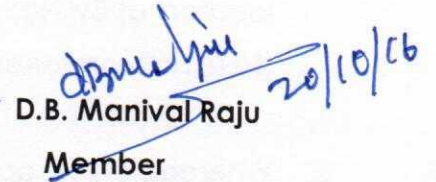 20/10/16
D.B. Manival Raju
Member